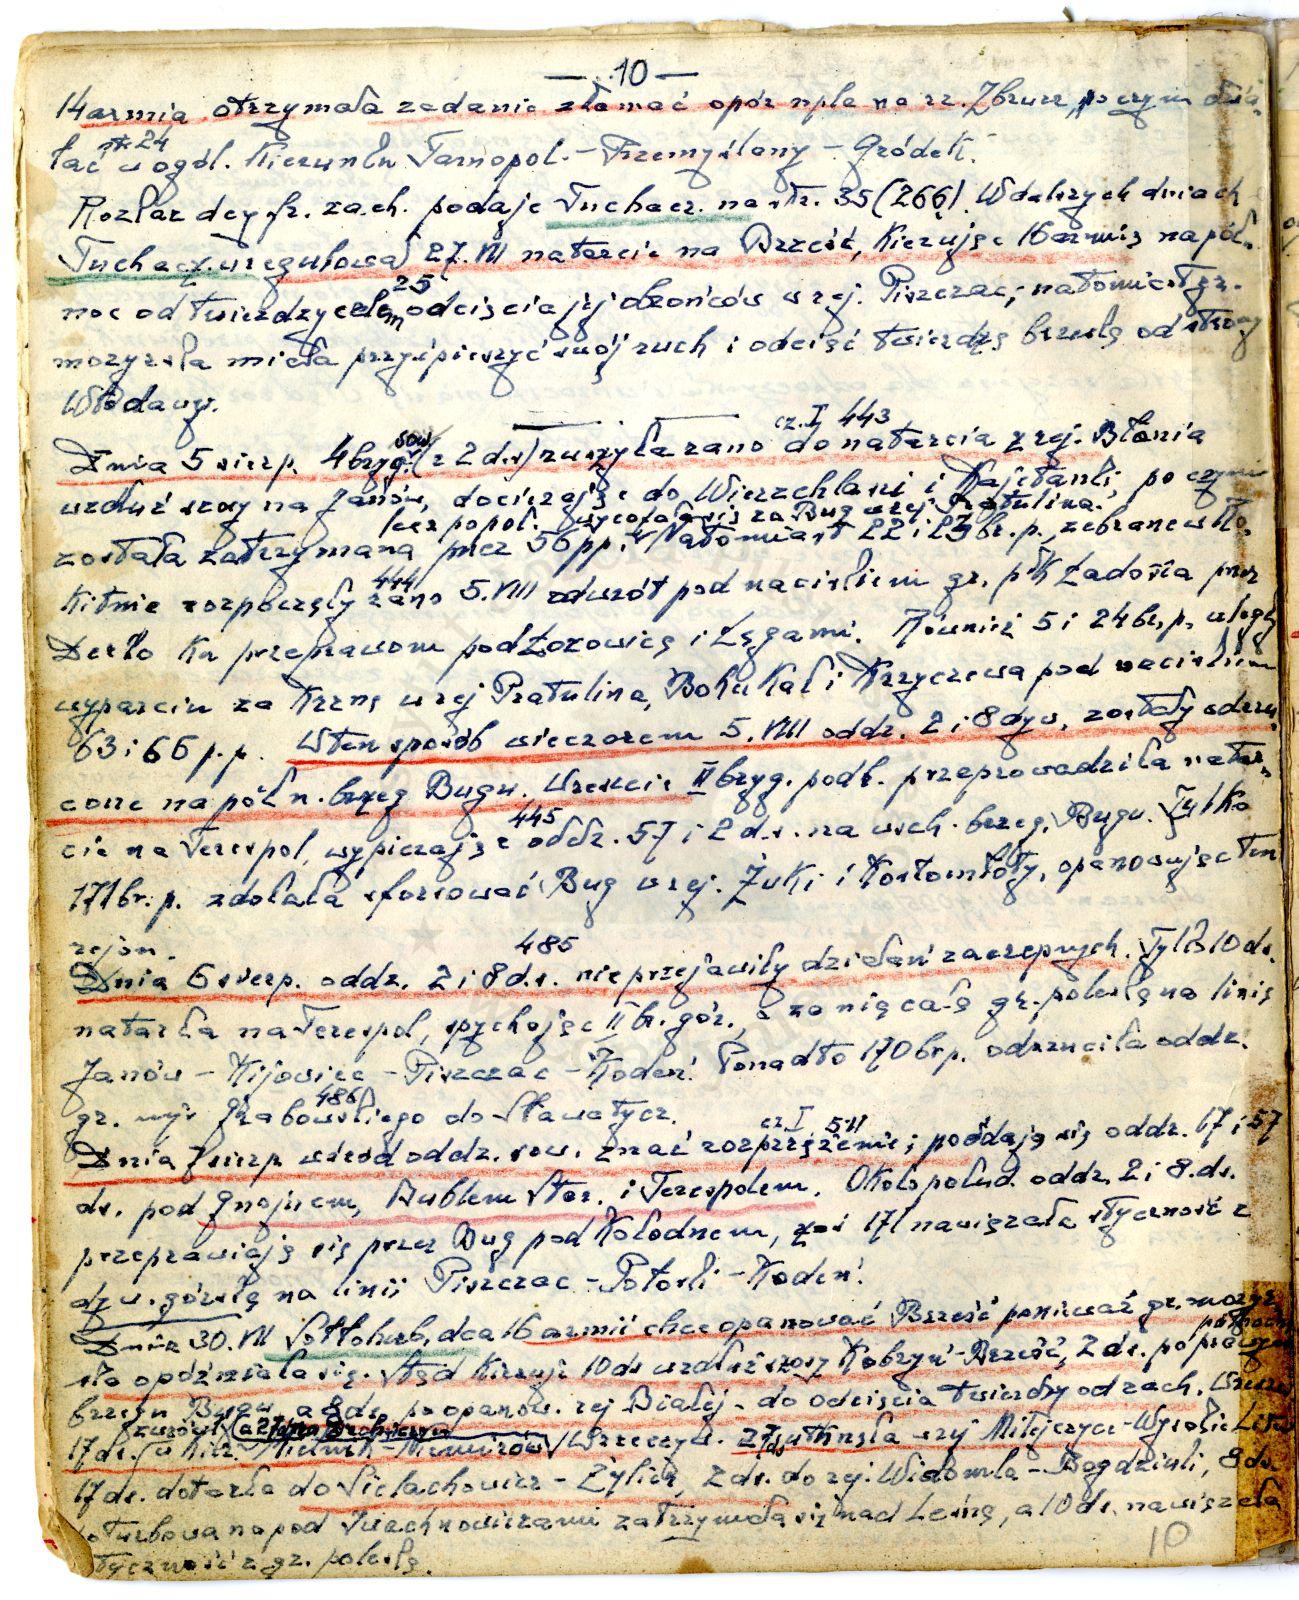 — 10 —
14 armia otrzymała zadanie złamać opór npla na rz. Zbrucz, poczym dzia-
str. 24
łać w ogól. kierunku Tarnopol. – Przemyślany – Gródek.
Rozkaz dcy fr. zach. podaje Tuchacz. na str. 35 (266). W dalszych dniach
Tuchacz. uregulował 27. VII natarcie na Brześć, kierując 16 armię na pół-
25
noc od twierdzy celem odcięcia jej obrońców w rej. Piszczac; natomiast gr.
mozyrska miała przyśpieszyć swój ruch i odciąć twierdzę brzeską od strony
Włodawy.
cz. I 443
Dnia 5 sierp. 4 bryg. sow. (z 2 d.s.) ruszyła rano do natarcia z rej. Błonia
wzdłuż szosy na Janów, docierając do Wierzchlasi i Kajetanki, po czym
kerpopoł. wycofała się za Bug w rej. Pratulina.
została zatrzymana przez 56 pp. Natomiast 22 i 23 br. p., zebrane w Ro-
444
kitnie rozpoczęły rano 5. VIII odwrót pod naciskiem gr. płk Ładosia przez
Derło ku przeprawom pod Zozowicą i Łęgami. Również 5 i 24 br. p. uległy
wyparciu za Krznę w rej Pratulina, Bohukał i Krzyczewa pod naciskiem
63 i 66 p.p. W ten sposób wieczorem 5. VIII oddz. 2 i 8 dyw. zostały odrzu-
cone na półn. brzeg Bugu. Wreszcie II bryg. podh. przeprowadziła natar-
445
cie na Terespol, wypierając oddz. 57 i 2 d.s. na wsch. brzeg. Bugu. Tylko
171 br. p. zdołała sforsować Bug w rej. Żuki i Kostomłoty, opanowując ten
rejon.
485
Dnia 6 sierp. oddz. 2 i 8 d.s. nie przejawiły działań zaczepnych. Tylko 10 ds.
natarła na Terespol, spychając II br. gór., a za nią całą gr. poleską na linię
Janów – Kijowiec – Piszczac – Kodeń. Ponadto 170 br p. odrzuciła oddz.
486
gr. mjr Grabowskiego do Sławatycz.
cz I 511
Dnia 7 sierp. wśród oddz. sow. znać rozprzężenie; poddają się oddz. 17 i 57
ds. pod Gnojnem, Bublem Star. i Terespolem. Około połud. oddz. 2 i 8. ds.
przeprawiają się przez Bug pod Kołodnem, zaś 171 nawiązała styczność z
dyw. górską na linii Piszczac – Potorki – Kodeń.
Dnia 30. VII Sołłohub, dca 16 armii chce opanować Brześć ponieważ gr. mozyr-
ska opóźniała się. Stąd kieruje 10 ds wzdłuż szosy Kobryń – Brześć, 2 ds. po prawym
brzegu Bugu, a 8 ds. po opanow. rej Białej – do odcięcia twierdzy od zach. Wreszcie
17 ds. w kier. Mielnik – Niemirów. W rzeczyw. 27 ds utknęła w rej Milejczyce – Wysokie Lit
17 ds. dotarła do Sielachowicz – Żylicz, 2 ds. do rej. Widomla – Bogdziuki, 8 ds.
pod Suchnowiczami zatrzymała się nad Leśną, a 10 ds. nawiązała
styczność z gr. poleską.
10